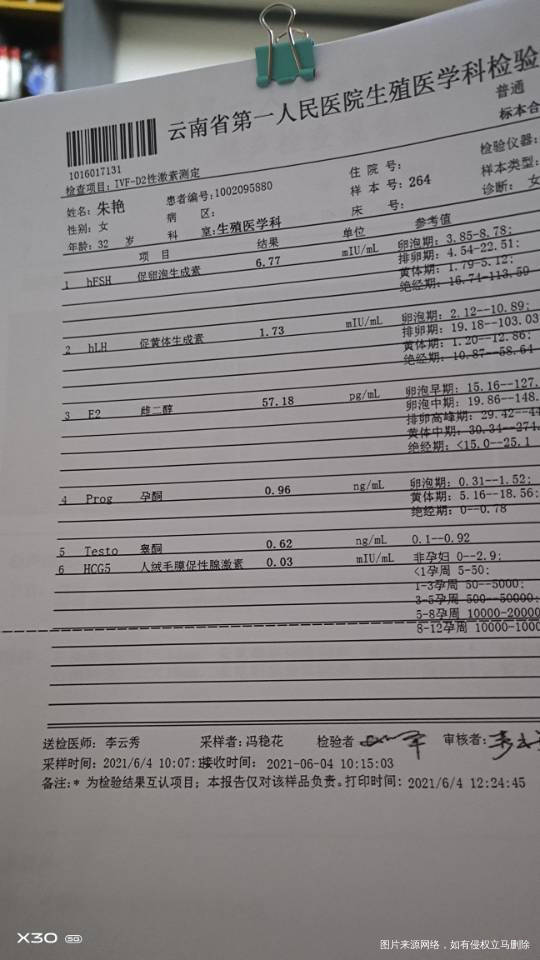 云南省第一人民医院生殖医学科检验
普通
标本合
1016017131
检查项目: IVF-D2性激素测定
检验仪器:
姓名: 朱艳 患者编号: 1002095880 住 院 号: 样本类型:
性别: 女 病 区: 样 本 号: 264 诊断: 女
年龄: 32 岁 科 室: 生殖医学科 床 号:
项 目 结果 单位 参考值
1 hFSH 促卵泡生成素 6.77 mIU/mL 卵泡期: 3.85-8.78;
排卵期: 4.54-22.51;
黄体期: 1.79-5.12;
绝经期: 16.74-113.59
2 hLH 促黄体生成素 1.73 mIU/mL 卵泡期: 2.12--10.89;
排卵期: 19.18--103.03
黄体期: 1.20--12.86;
绝经期: 10.87--58.64
3 E2 雌二醇 57.18 pg/mL 卵泡早期: 15.16--127.
卵泡中期: 19.86--148.
排卵高峰期: 29.42--44
黄体中期: 30.34--274.
绝经期: <15.0--25.1
4 Prog 孕酮 0.96 ng/mL 卵泡期: 0.31--1.52;
黄体期: 5.16--18.56;
绝经期: 0--0.78
5 Testo 睾酮 0.62 ng/mL 0.1--0.92
6 HCG5 人绒毛膜促性腺激素 0.03 mIU/mL 非孕妇 0--2.9;
<1孕周 5-50;
1-3孕周 50--5000;
3-5孕周 500--50000;
5-8孕周 10000-20000
8-12孕周 10000-1000
送检医师: 李云秀 采样者: 冯稳花 检验者 审核者:
采样时间: 2021/6/4 10:07:1 接收时间: 2021-06-04 10:15:03
备注:* 为检验结果互认项目; 本报告仅对该样品负责。打印时间: 2021/6/4 12:24:45
X30 5G
图片来源网络，如有侵权立马删除